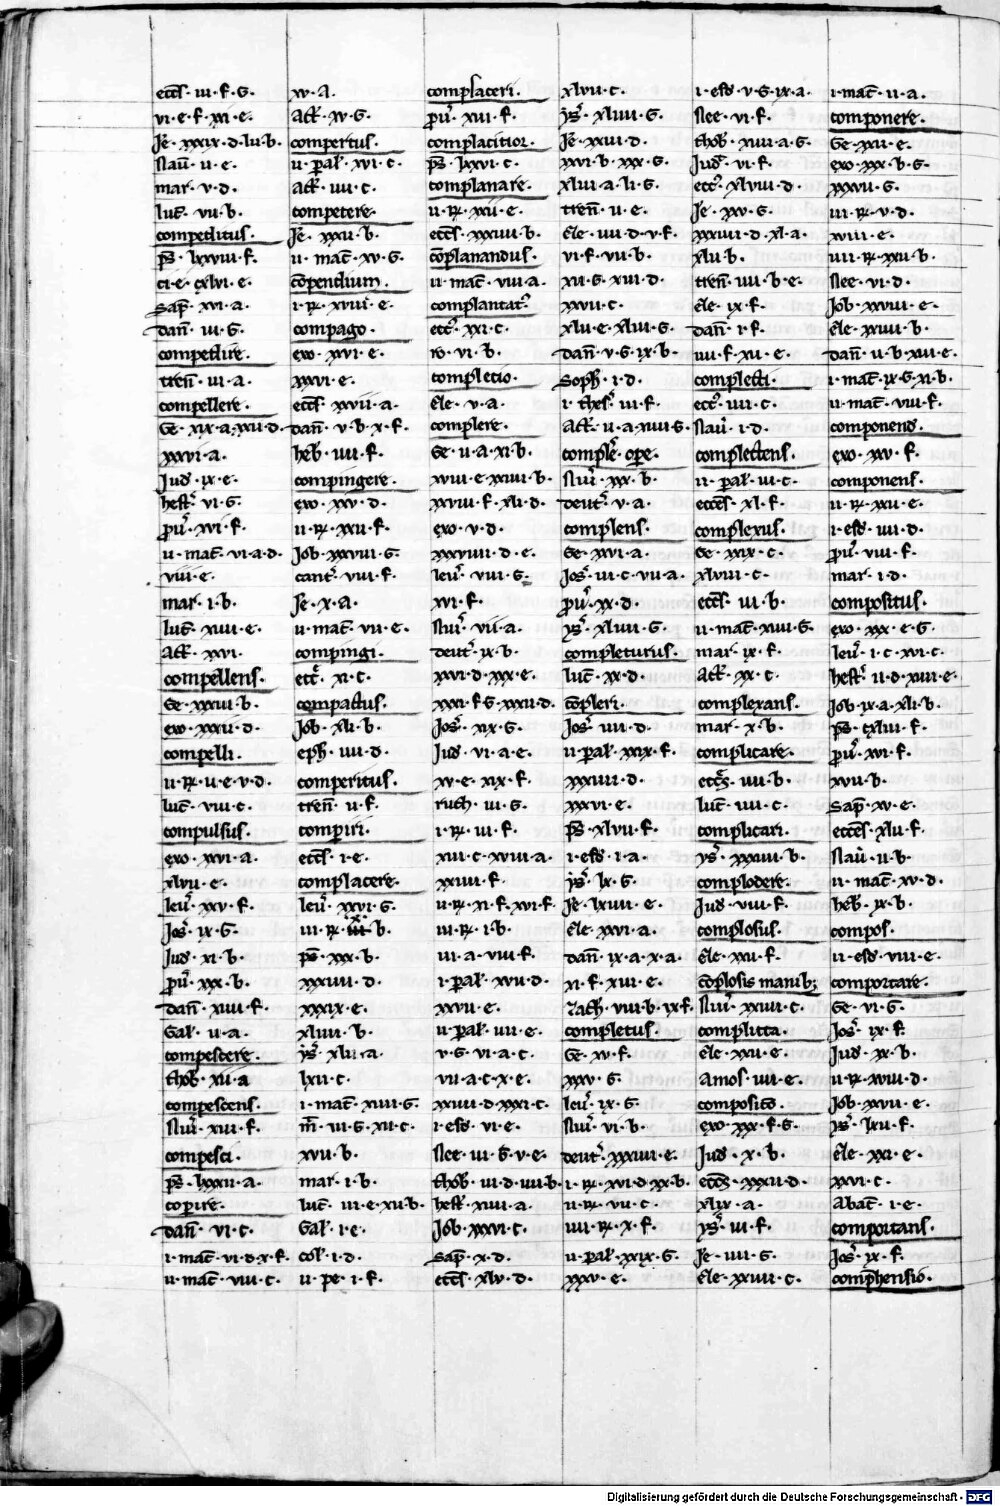 eccĺ · iii · f · g ·
vi · e · f · xii · e ·
Je · xxix · d · lii · b ·
Nau · ii · e ·
mar · v · d ·
luc · vii · b ·
compeditus ·
ps · lxxviii · f ·
ci · e · cxlvi · e ·
Sap · xvi · a ·
dan · iii · g ·
compedire ·
tren · iii · a ·
compellere ·
Ge · xix · a · xxii · d ·
xxvi · a ·
Jud · ix · e ·
hest · vi · g ·
pu · xvi · f ·
ii · mac · vi · a · d ·
viii · e ·
mar · i · b ·
luc · xiiii · e ·
Act · xxvi ·
compellens ·
Ge · xxxiii · b ·
exo · xxxii · d ·
compelli ·
ii · R · ii · e · v · d ·
luc · viii · c ·
compulsus ·
exo · xvi · a ·
xlvii · e ·
leu · xxv · f ·
Jos · ix · g ·
Jud · xi · b ·
pu · xxx · b ·
dan · xiiii · f ·
Gal · ii · a ·
compescere ·
thob · xii · a
compescens ·
Nu · xiii · f ·
compesci ·
ps · lxxxii · a ·
copire ·
dan · vi · c ·
i · mac · vi · d · x · f ·
ii · mac · viii · c ·
xv · a ·
Act · xv · g ·
compertus ·
ii · pal · xvi · c ·
act · iiii · c ·
competere ·
Je · xxxii · b ·
ii · mac · xv · g ·
copendium ·
i · R · xviii · e ·
compago ·
exo · xvi · e ·
xxvi · e ·
eccĺ · xxvii · a ·
dan · v · b · x · f ·
heb · iiii · f ·
compingere ·
exo · xxv · d ·
ii · R · xxii · f ·
Job · xxxviii · g ·
cant · viii · f ·
Je · x · a ·
ii · mac · vii · e ·
compingi ·
ecc · xi · c ·
compactus ·
Job · xli · b ·
eph · iiii · d ·
comperitus ·
tren · ii · f ·
compiri ·
eccĺ · i · e ·
complacere ·
leu · xxvi · g ·
iii · R · b ·
ps · xxx · b ·
xxxiii · d ·
xxxix · e ·
xliii · b ·
ys · xlii · a ·
lxii · c ·
i · mac · xiiii · g ·
m · iii · g · xii · c ·
xvii · b ·
mar · i · b ·
luc · iii · e · xii · b ·
Gal · i · e ·
col · i · d ·
ii · pe · i · f ·
complaceri ·
pu · xvi · f ·
complacitior ·
ps · lxxvi · c ·
complanare ·
ii · R · xxii · e ·
eccĺ · xxxiiii · b ·
coplanandus ·
ii · mac · viii · a ·
complantat ·
ecc · xxi · c ·
ro · vi · b ·
completio ·
Ele · v · a ·
complere ·
Ge · ii · a · xi · b ·
xviii · e · xxiiii · b ·
xxviii · f · xli · d ·
exo · v · d ·
xxxviii · d · e ·
leu · viii · g ·
xvi · f ·
Nu · vii · a ·
deut · ix · b ·
xxvi · d · xxx · e ·
xxxi · f · g · xxxii · d ·
Jos · xix · g ·
Jud · vi · a · e ·
xv · e · xix · f ·
ruth · iii · g ·
i · R · iii · f ·
xiii · c · xviii · a ·
xxiiii · f ·
ii · R · xi · f · xvi · f ·
iii · R · i · b ·
iii · a · viii · f ·
i · pal · xvii · d ·
xxvii · e ·
ii · pal · iiii · e ·
v · g · vi · a · c ·
vii · a · c · x · e ·
xxiiii · d · xxxi · c ·
i · esd · vi · e ·
Nee · iii · g · v · e ·
thob · iii · d · iiii · b ·
hest · xiiii · a ·
Job · xxxvi · c ·
Sap · x · d ·
eccĺ · xlv · d ·
xlvii · c ·
ys · xliiii · g ·
Je · xxiii · d ·
xxvi · b · xxx · g ·
xliii · a · li · g ·
tren · ii · e ·
Ele · iiii · d · v · f ·
vi · f · vii · b ·
xii · g · xiii · d ·
xxvii · c ·
xlii · e · xliii · g ·
dan · v · g · ix · b ·
Soph · i · d ·
i · thes · iii · f ·
Act · ii · a · xiiii · g ·
comple · ope ·
Nu · xx · b ·
deut · v · a ·
complens ·
Ge · xvi · a ·
Jos · iii · c · vii · a ·
pu · xx · d ·
ys · xliiii · g ·
completurus ·
luc · xx · d ·
copleri ·
Jos · iiii · d ·
ii · pal · xxix · f ·
xxxiii · d ·
xxxvi · e ·
ps · xlvii · f ·
i · esd · i · a ·
ys · lx · g ·
Je · lxiii · e ·
Ele · xxvi · a ·
dan · ix · a · x · a ·
xi · f · xii · e ·
Zach · viii · b · ix · f ·
completus ·
Ge · xv · f ·
xxxv · g ·
leu · ix · g ·
Nu · vi · b ·
deut · xxxiiii · e ·
i · R · xvi · d · xx · b ·
ii · R · vii · c ·
iiii · R · x · f ·
ii · pal · xxix · g ·
xxxv · e ·
i · esd · v · g · ix · a ·
Nee · vi · f ·
thob · xiiii · a · g ·
Jud · vi · f ·
ecc · xlviii · d ·
Je · xxv · g ·
xxxiii · d · xl · a ·
xli · b ·
tren · iiii · b · e ·
Ele · ix · f ·
dan · i · f ·
iiii · f · xii · e ·
complecti ·
ecc · iiii · c ·
Nau · i · d ·
complectens ·
ii · pal · iii · c ·
eccĺ · xl · f ·
complexus ·
Ge · xxix · c ·
xlviii · c ·
eccĺ · iii · b ·
ii · mac · xiiii · g ·
mar · ix · f ·
Act · xx · c ·
complexans ·
mar · x · b ·
complicare ·
eccs · iiii · b ·
luc · iiii · c ·
complicari ·
ys · xxxiiii · b ·
complodere ·
Jud · viii · f ·
complosus ·
Ele · xxi · f ·
coplosis manib;
Nu · xxiiii · c ·
complitta ·
Ele · xxii · e ·
Amos · iiii · e ·
composico ·
exo · xxx · f · g ·
Jud · x · b ·
eccĺ · xxxii · d ·
xlix · a ·
ys · iii · f ·
Je · iiii · g ·
Ele · xxiiii · c ·
i · mac · ii · a ·
componere ·
Ge · xxii · e ·
exo · xx · b · g ·
xxxvii · g ·
iii · R · v · d ·
xviii · e ·
iiii · R · xxi · b ·
Nee · vi · d ·
Job · xxviii · e ·
Ele · xxiiii · b ·
dan · ii · b · xiii · e ·
i · mac · ix · g · xi · b ·
ii · mac · viii · f ·
componend ·
exo · xv · f ·
componens ·
ii · R · xxi · e ·
i · esd · iiii · d ·
pu · viii · f ·
mar · i · d ·
compositus ·
exo · xxx · e · g ·
leu · i · c · xvi · c ·
hest · ii · d · xiiii · e ·
Job · ix · a · xli · b ·
ps · cxliii · f ·
pu · xvi · f ·
xvii · b ·
Sap · xv · e ·
eccĺ · xlii · f ·
Nau · ii · b ·
ii · mac · xv · d ·
heb · ix · b ·
compos ·
ii · esd · viii · e ·
comportare ·
Ge · vi · g ·
Jos · ix · f ·
Jud · ix · b ·
ii · R · xviii · d ·
Job · xxvii · e ·
ys · lxii · f ·
Ele · xxi · e ·
xxvi · c ·
Abac · i · e ·
comportans ·
Jos · ix · f ·
comphensio ·
Digitalisierung gefördert durch die Deutsche Forschungsgemeinschaft - DFG